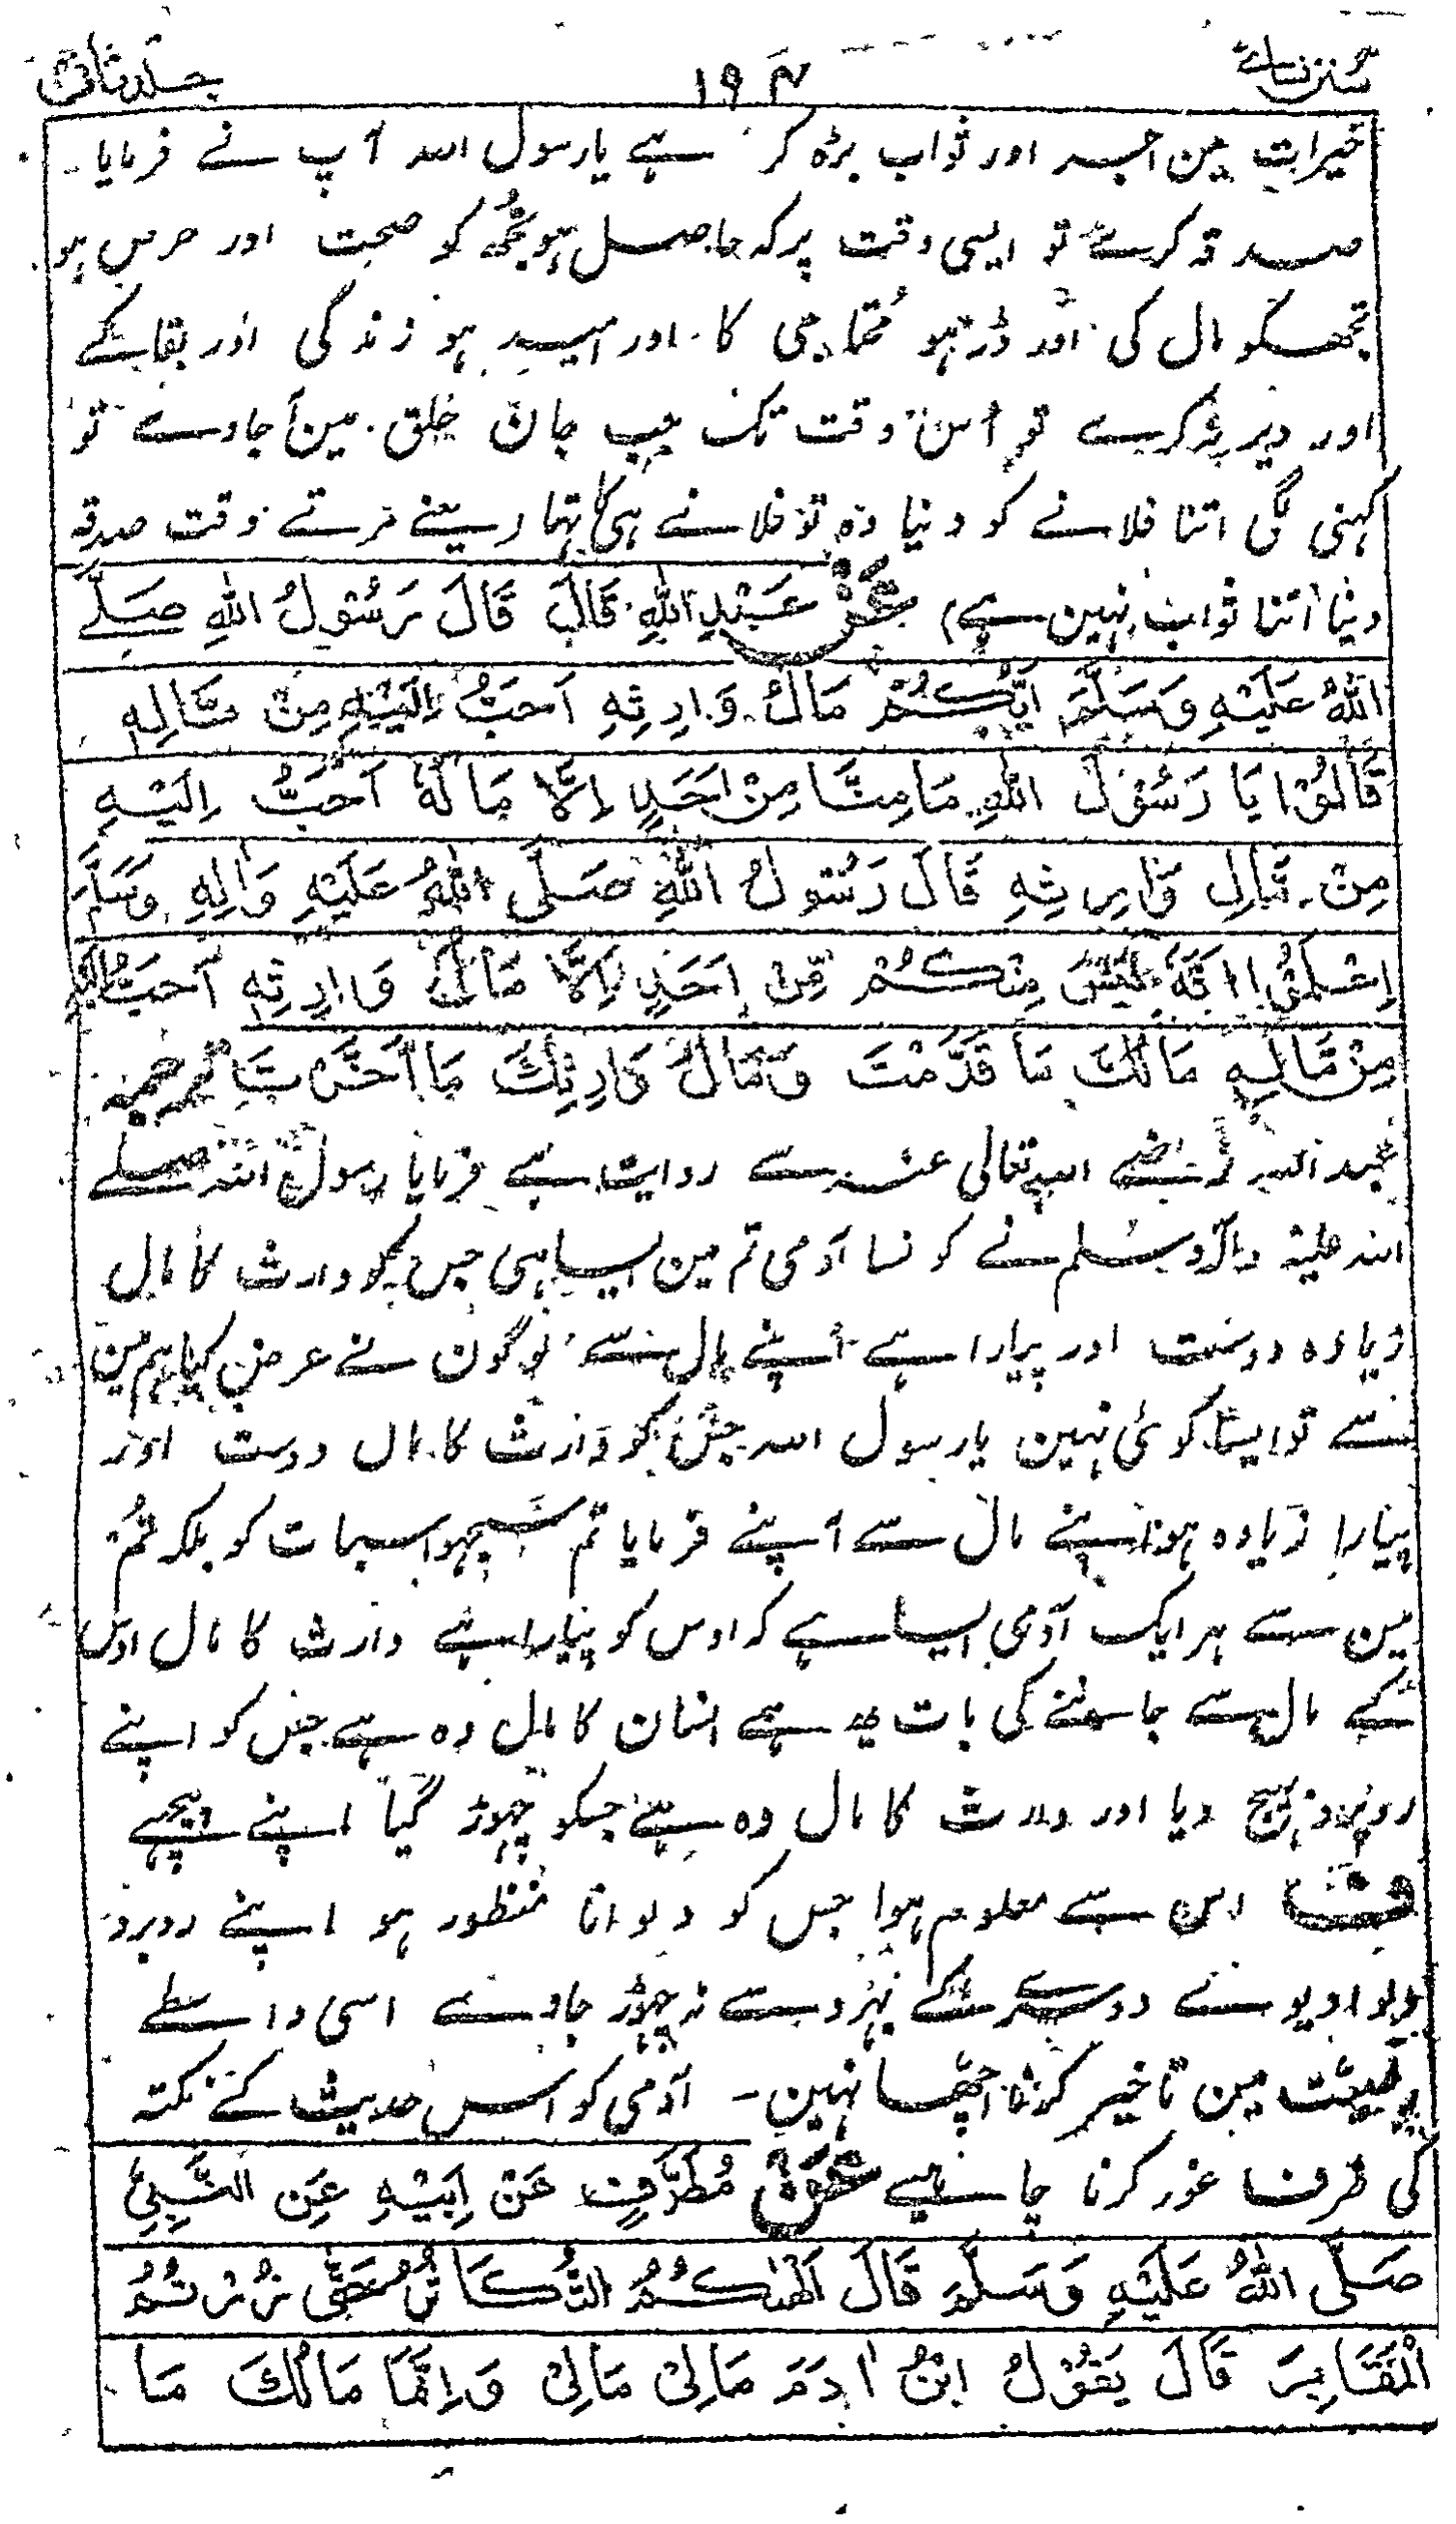 سنن نسائے ۱۹۴ جلد ثانی
خیرات مین اجر اور ثواب بڑہ کر ہے یا رسول اللہ آپ نے فرمایا۔
صدقہ کرے تو ایسی وقت پر کہ حاصل ہو تجھ کو صحت اور حرص ہو
تجھکو مال کی اور ڈر ہو مُحتاجی کا اور امید ہو زندگی اور بقا کے
اور دیر نہ کرے تو اُس وقت تک جب جان حلق مین آجاوے تو
کہنی لگی اتنا فلانے کو دنیا وہ تو فلانے ہی کا تہا یعنے مرتے وقت صدقہ
دینا اتنا ثواب نہین ہے، عَنْ عَبْدِ اللهِ قَالَ قَالَ رَسُوْلُ اللهِ صَلَّے
اللهُ عَلَيْهِ وَسَلَّمَ اَيُّكُمْ مَالُ وَارِثِهِ اَحَبُّ اِلَيْهِ مِنْ مَّالِهِ
قَالُوْا يَا رَسُوْلَ اللهِ مَا مِنَّا مِنْ اَحَدٍ اِلَّا مَالُهُ اَحَبُّ اِلَيْهِ
مِنْ مَّالِ وَّارِثِهِ قَالَ رَسُولُ اللهِ صَلَّى اللهُ عَلَيْهِ وَاٰلِهِ وَسَلَّمَ
اِعْلَمُوْا اَنَّهُ لَيْسَ مِنْكُمْ مِّنْ اَحَدٍ اِلَّا مَالُ وَارِثِهِ اَحَبُّ اِلَيْهِ
مِنْ مَّالِهِ مَالُكَ مَا قَدَّمْتَ وَمَالُ وَارِثِكَ مَا اَخَّرْتَ ترجمہ
عبد اللہ رضے اللہ تعالی عنہ سے روایت ہے فرمایا رسول اللہ صلے
اللہ علیہ وآلہ وسلم نے کونسا آدمی تم مین ایسا ہی جس کو وارث کا مال
زیادہ دوست اور پیارا ہے اپنے مال سے لوگون نے عرض کیا ہم مین
سے تو ایسا کوئی نہین یا رسول اللہ جس کو وارث کا مال دوست اور
پیارا زیادہ ہو اپنے مال سے آپنے فرمایا تم سمجہو اسبات کو بلکہ تم
مین سے ہر ایک آدمی ایسا ہے کہ اوس کو پیارا ہے وارث کا مال اوس
کے مال سے جاننے کی بات یہ ہے انسان کا مال وہ ہے جس کو اپنے
روبرو بہیج دیا اور وارث کا مال وہ ہے جسکو چہوڑ گیا اپنے پیچہے
ف اس سے معلوم ہوا جس کو دلوانا منظور ہو اپنے روبرو
دلوا دیوے دوسرے کے بہروسے نہ چہوڑ جاوے اسی واسطے
وصیت مین تاخیر کرنا اچہا نہین۔ آدمی کو اس حدیث کے نکتہ
کی طرف غور کرنا چاہیے عَنْ مُطَرِّفٍ عَنْ اَبِيْهِ عَنِ النَّبِيِّ
صَلَّى اللهُ عَلَيْهِ وَسَلَّمَ قَالَ اَلْهٰكُمُ التَّكَاثُرُ حَتّٰى زُرْتُمُ
الْمَقَابِرَ قَالَ يَقُوْلُ ابْنُ اٰدَمَ مَالِىْ مَالِىْ وَاِنَّمَا مَالُكَ مَا